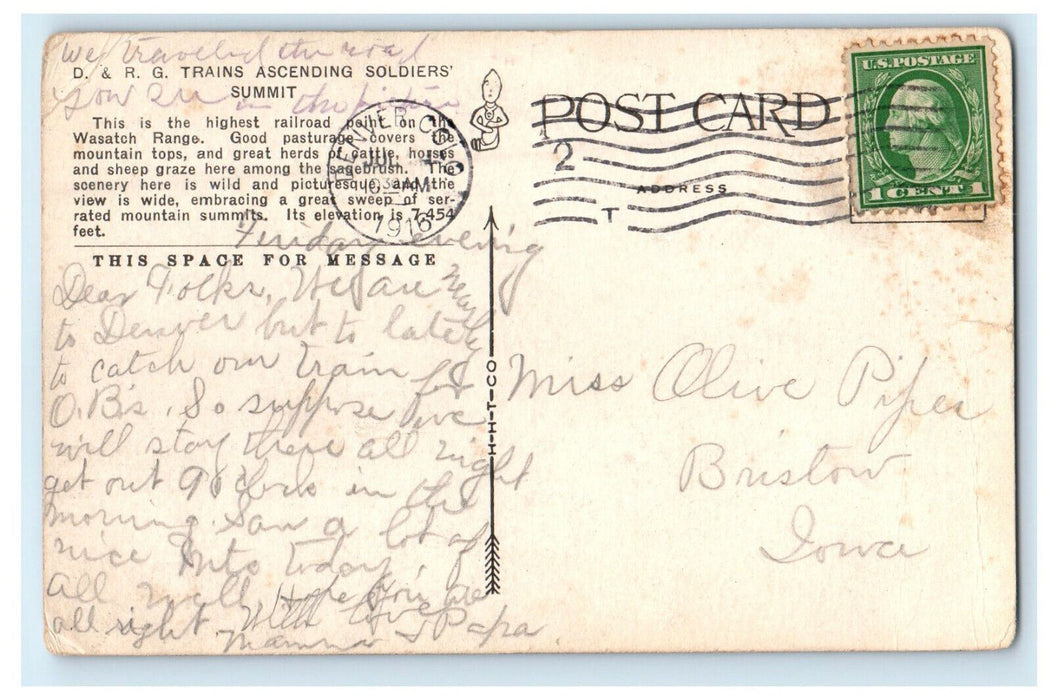 We traveled the road
D. & R. G. TRAINS ASCENDING SOLDIERS'
SUMMIT
you see in the picture
This is the highest railroad point on the
Wasatch Range. Good pasturage covers the
mountain tops, and great herds of cattle, horses
and sheep graze here among the sagebrush. The
scenery here is wild and picturesque and the
view is wide, embracing a great sweep of ser-
rated mountain summits. Its elevation is 7,454
feet.
THIS SPACE FOR MESSAGE
Friday evening
Dear Folks, We are near
to Denver but to late
to catch our train for
O. B's. So suppose we
will stay there all night
get out 9 o'clock in the
morning. Saw a lot of
nice Mts today.
all well Hope you are
all right With love
Mamma & Papa.
H-H-T-CO
POST CARD
ADDRESS
DENVER, COLO.
JUL
AM
1916
2
T
U.S. POSTAGE
1 CENT 1
Miss Olive Piper
Bristow
Iowa